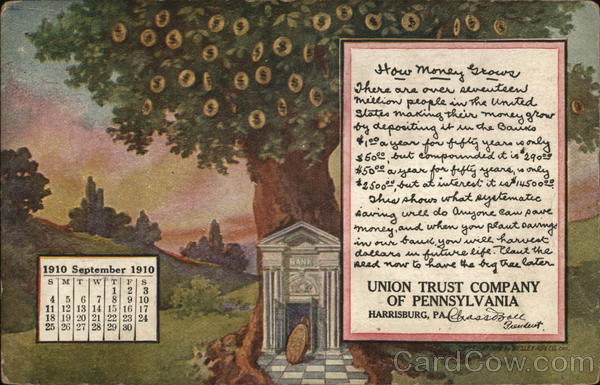 How Money Grows
There are over seventeen
Million people in the United
States making their money grow
by depositing it in the Banks
$1.00 a year for fifty years is only
$50.00, but compounded it is 290.00
$50.00 a year for fifty years, is only
$2500.00, but at interest it is $14500.00
This shows what systematic
saving will do Anyone can save
money, and when you plant savings
in our bank you will harvest
dollars in future life. Plant the
seed now to have the big tree later
UNION TRUST COMPANY
OF PENNSYLVANIA
HARRISBURG, PA.
President.
BANK
1910 September 1910
S M T W T F S
1 2 3
4 5 6 7 8 9 10
11 12 13 14 15 16 17
18 19 20 21 22 23 24
25 26 27 28 29 30
CardCow.com